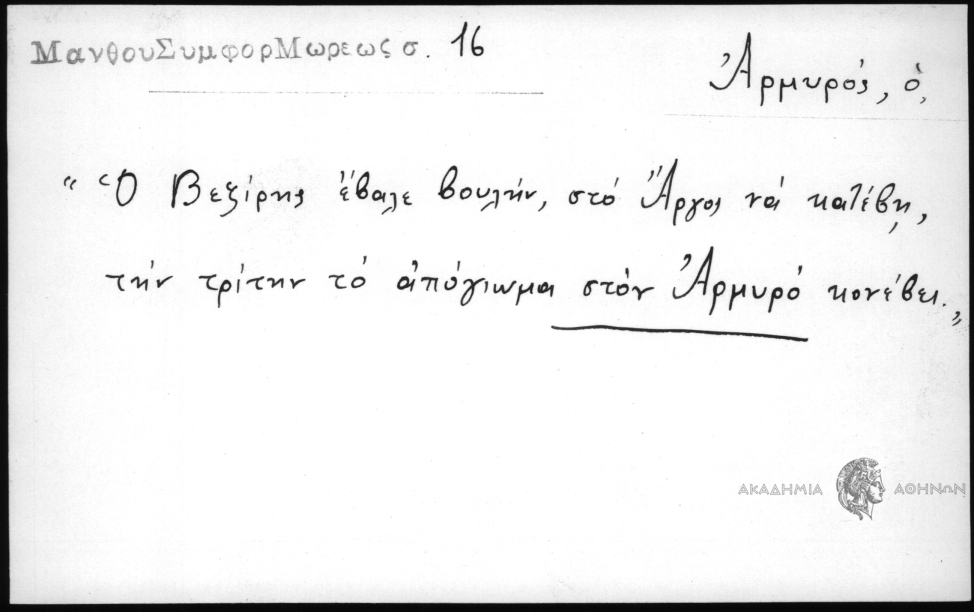 ΜανθουΣυμφορΜωρεως σ. 16
Ἁρμυρός, ὁ,
“ Ὁ Βεζίρης ἔβαλε βουλήν, στό Ἄργος νά κατέβῃ,
τήν τρίτην τό ἀπόγιωμα στὸν Ἁρμυρό κονέβει. ”
ΑΚΑΔΗΜΙΑ ΑΘΗΝΩΝ